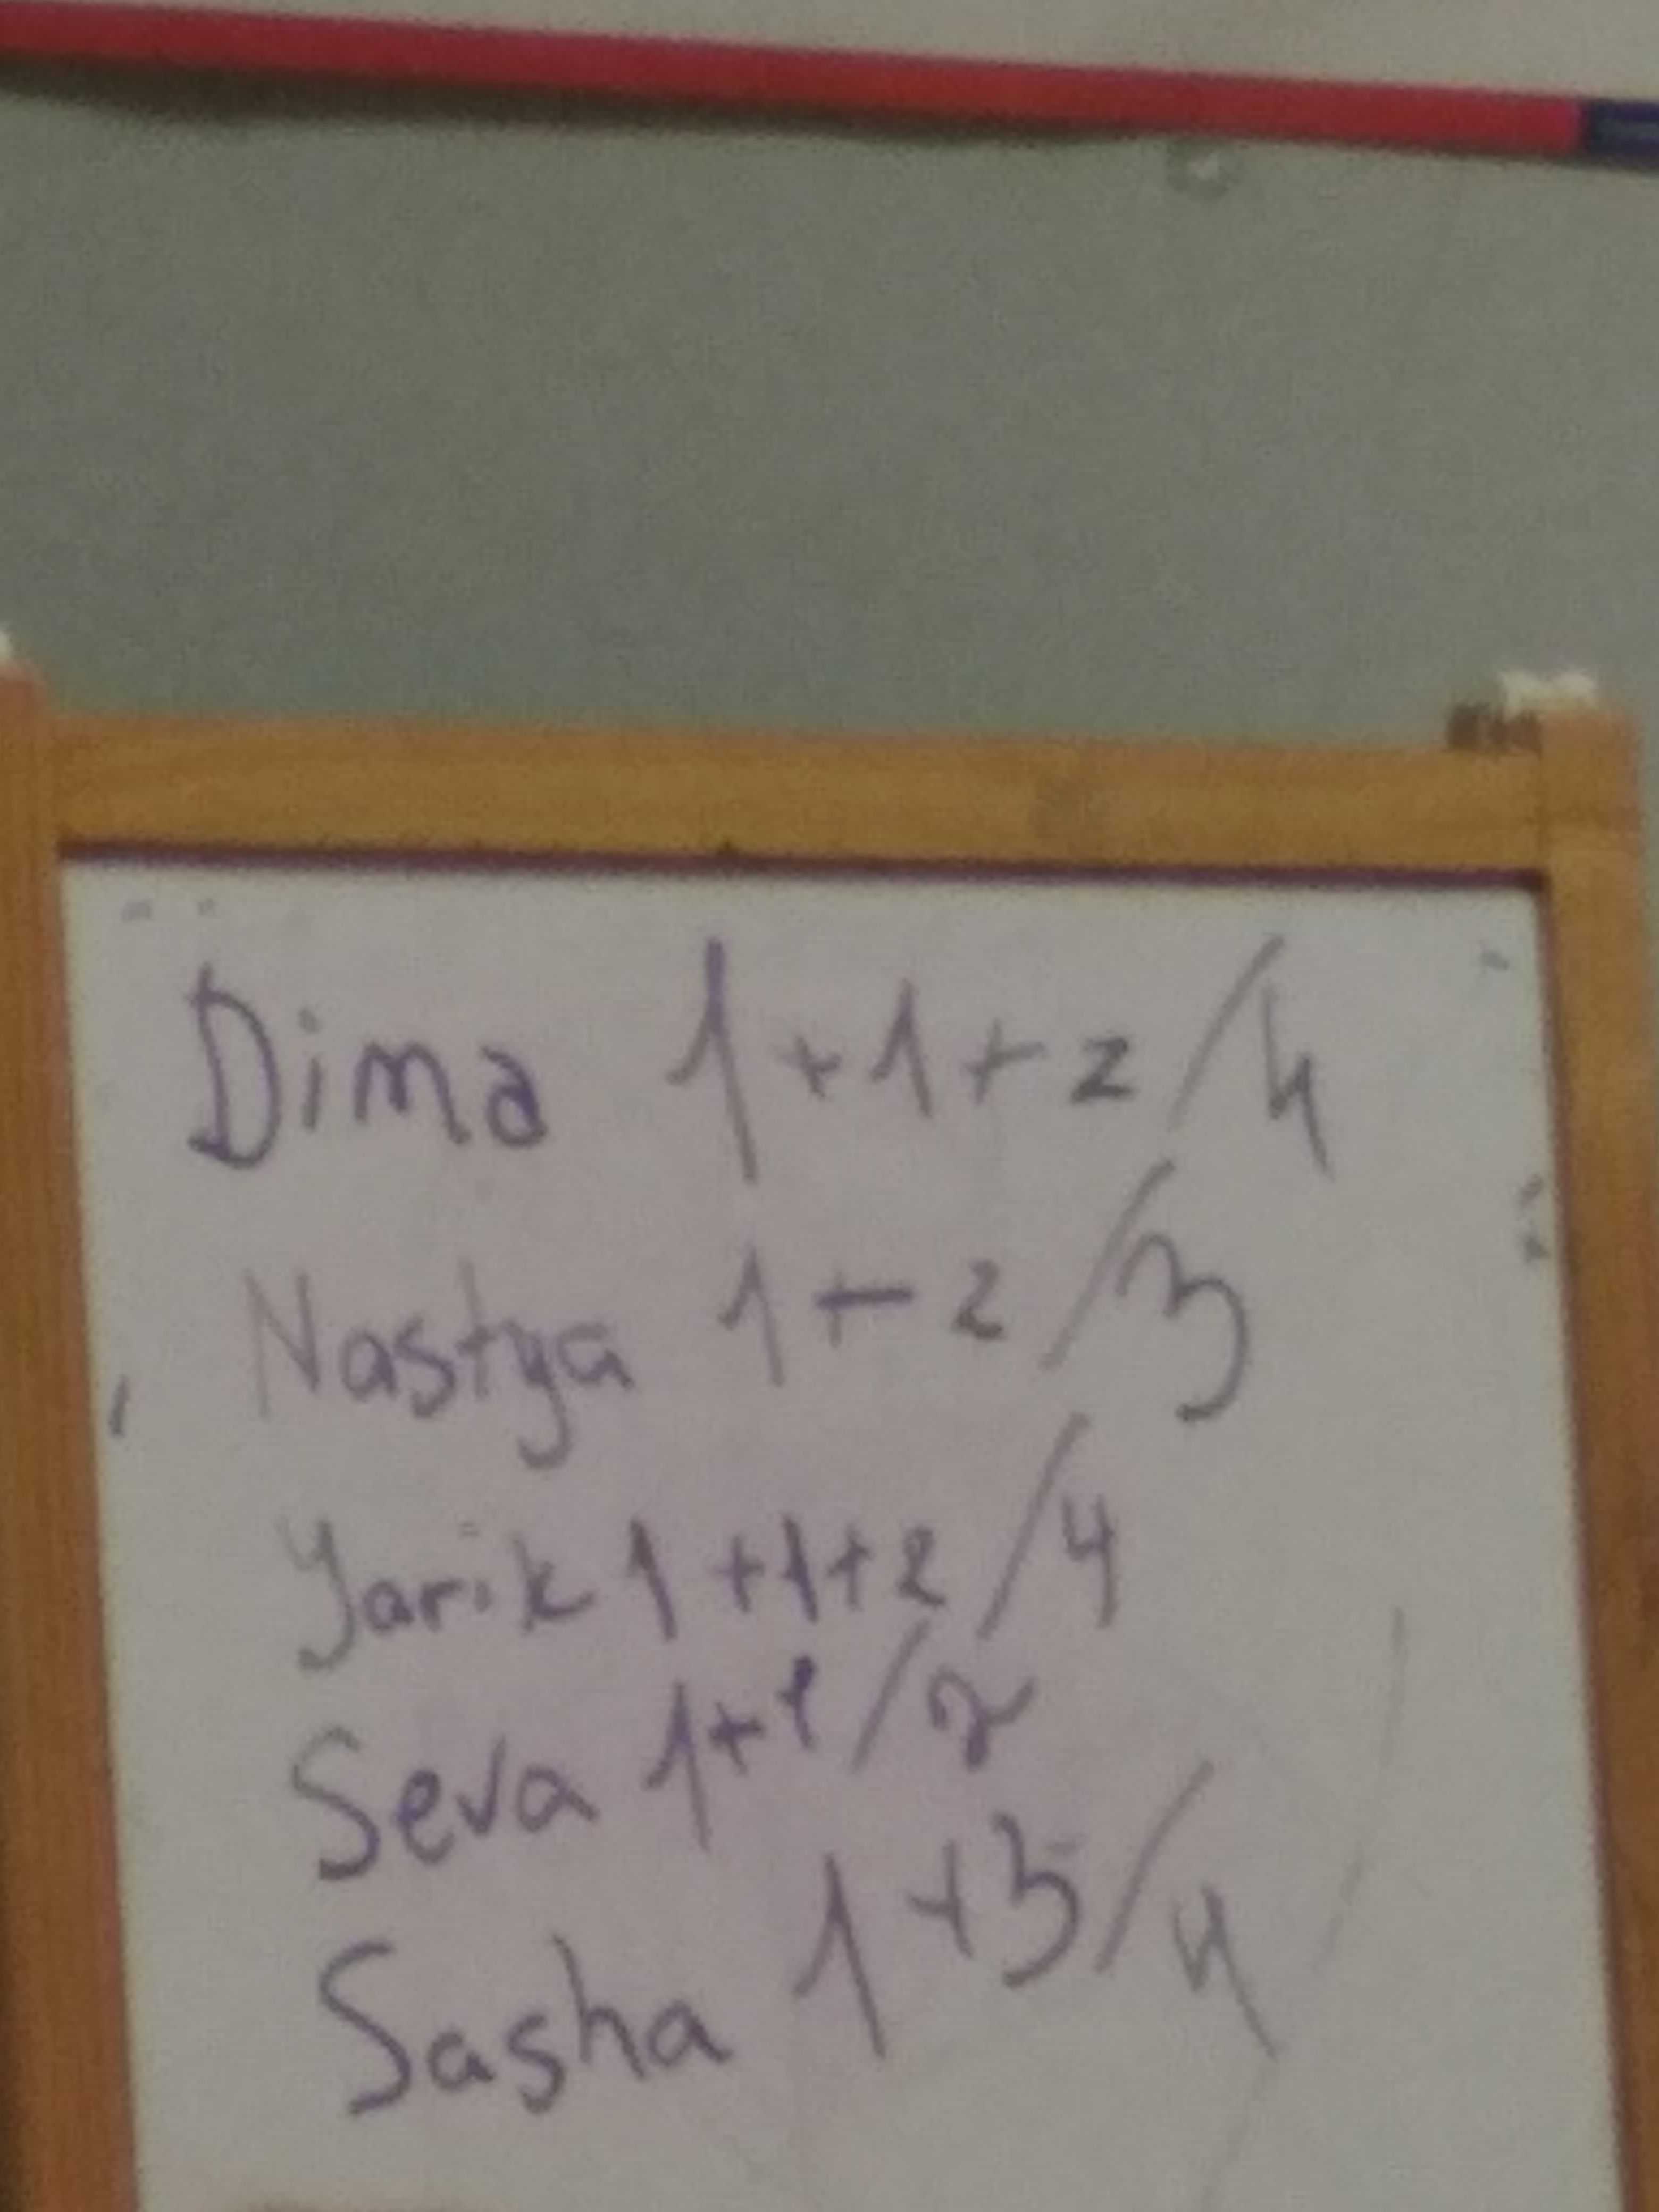 Dima 1+1+2/4
Nastya 1+2/3
Yarik 1+1+2/4
Seva 1+1/2
Sasha 1+3/4